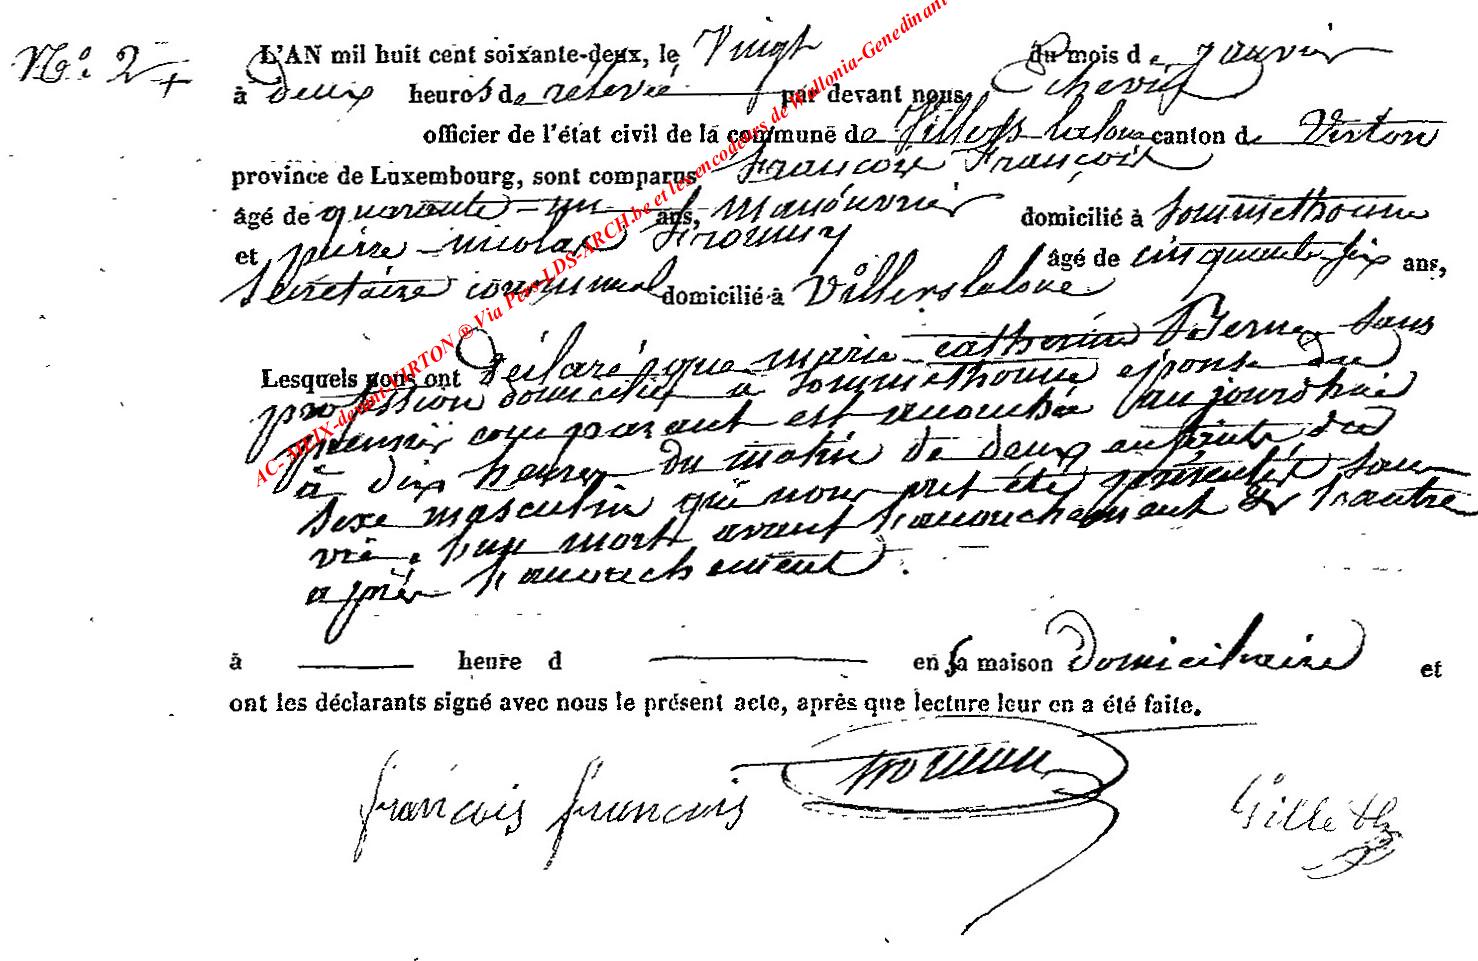 N.o 2
L'AN mil huit cent soixante-deux, le Vingt du mois de janvier
à deux heures de relevée par devant nous, Echevin
officier de l'état civil de la commune de Villers laloue canton de Virton
province de Luxembourg, sont comparus François François
âgé de quarante-un ans, manouvrier domicilié à Sommethonne
et pierre-nicolas âgé de cinquante six ans,
Secrétaire communal domicilié à Villers laloue
Lesquels nous ont déclaré que marie catherine sans
profession domiciliée à Sommethonne épouse du
premier comparant est accouchée aujourdhui
à dix heures du matin de deux enfants du
sexe masculin qui nous ont été présentés sans
vie, l'un mort avant l'accouchement & l'autre
après l'accouchement.
à heure d en sa maison domiciliaire et
ont les déclarants signé avec nous le présent acte, après que lecture leur en a été faite.
françois françois
Gille
AC- MEIX-devant-VIRTON ® Via Pers-LDS-ARCH.be et les encodeurs de Wallonia-Genedinant